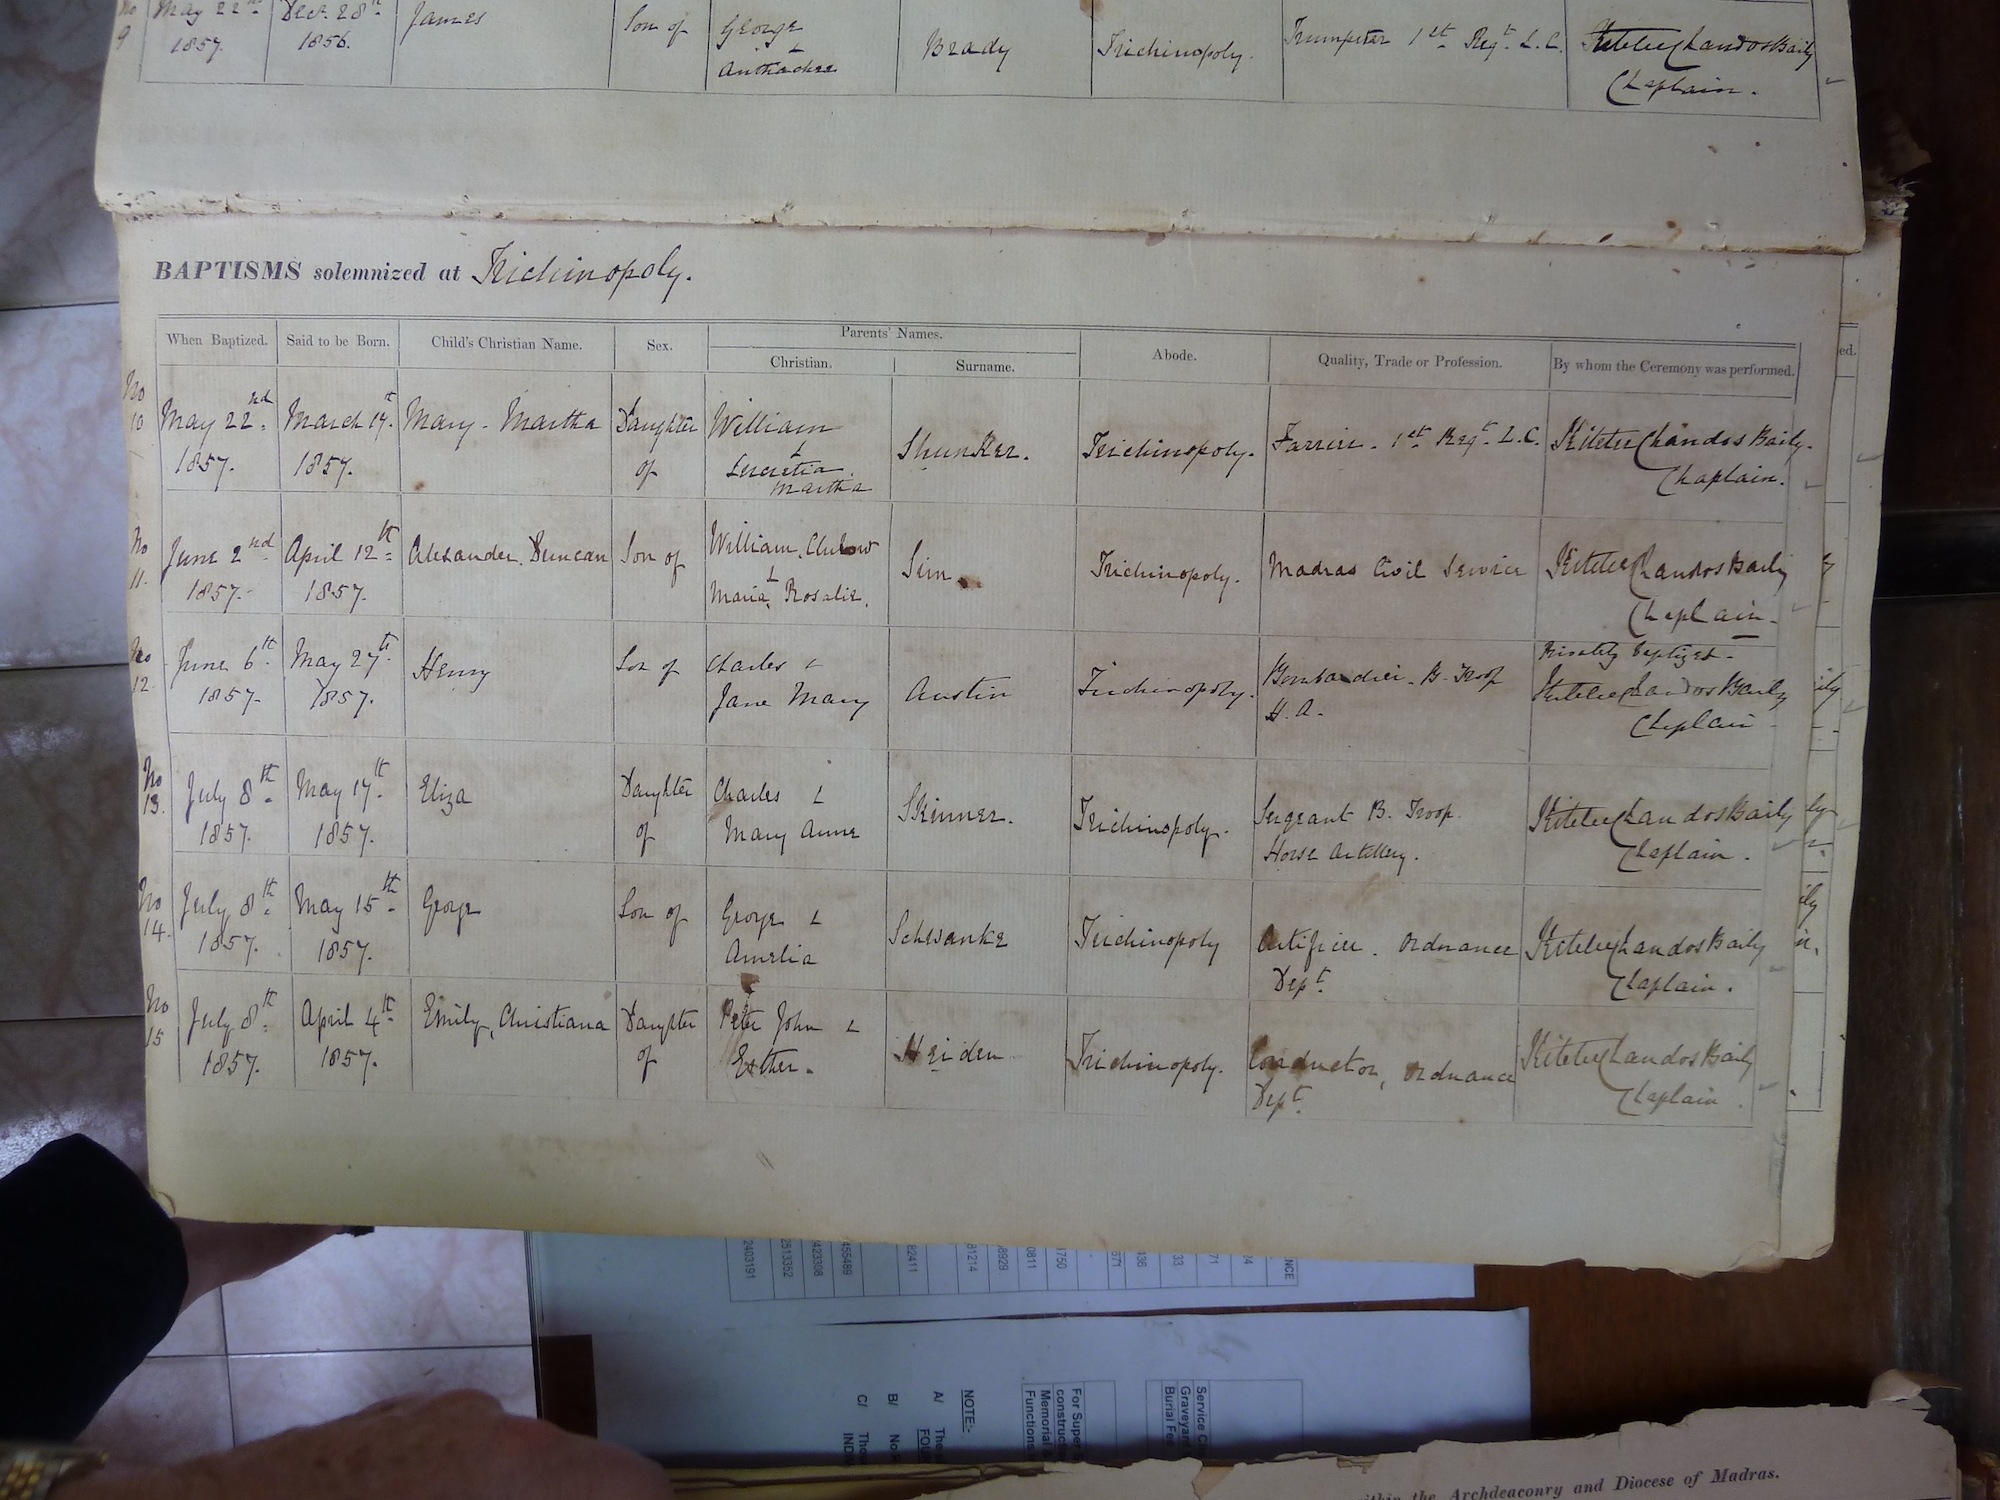 No 9 May 22nd 1857. Dect. 28th 1856. James Son of George & Brady Trichinopoly. Trumpeter 1st Regt. L.C. Chandos Baily
Chaplain.
BAPTISMS solemnized at Trichinopoly.
When Baptized. Said to be Born. Child's Christian Name. Sex. Parents' Names. Abode. Quality, Trade or Profession. By whom the Ceremony was performed.
Christian. Surname.
No 10 May 22nd. March 17th. Mary. Martha Daughter William Shunker. Trichinopoly. Farrier. 1st Regt. L.C. Chandos Baily.
1857. 1857. of & Lucretia Chaplain.
Martha
No 11. June 2nd April 12th Alexander. Duncan Son of William Sim. Trichinopoly. Madras Civil Service Chandos Baily
1857. 1857. & Maria, Rosalie. Chaplain.
Privately baptized.
No 12 June 6th. May 27th. Henry Son of Charles & Austin Trichinopoly. Bombardier. B. Troop Chandos Baily
1857. 1857. Jane Mary H.A. Chaplain
No 13. July 8th. May 17th. Eliza Daughter Charles & Skinner. Trichinopoly. Sergeant B. Troop Chandos Baily
1857. 1857. of Mary Anne Horse Artillery. Chaplain.
No 14. July 8th. May 15th. George Son of George & Schwanke Trichinopoly Artificer. Ordnance Chandos Baily
1857. 1857. Amelia Dept. Chaplain.
No 15 July 8th. April 4th. Emily, Christiana Daughter Peter John & Heiden Trichinopoly. Conductor, Ordnance Chandos Baily
1857. 1857. of Esther. Dept. Chaplain.
2403191
2513352
423308
455489
82411
81214
NOTE:-
A/
B/
C/
Archdeaconry and Diocese of Madras.